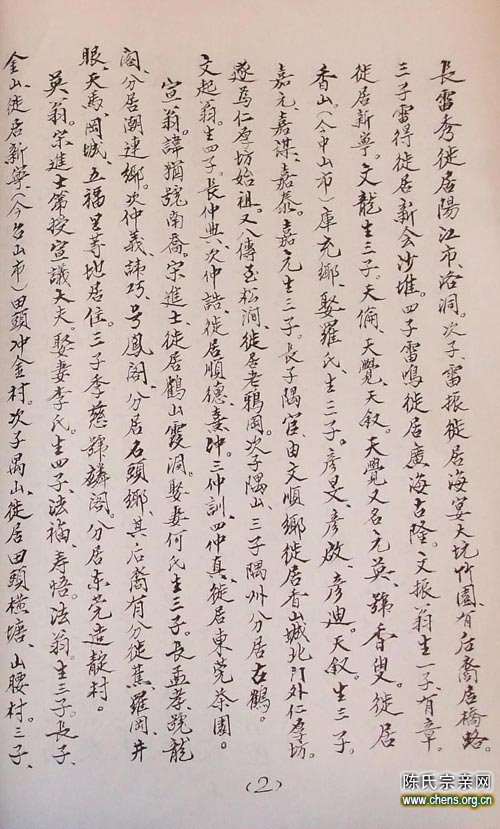 長雷秀徙居陽江市、洛洞。次子、雷振徙居海宴天坑竹園、有后裔居橋蛤。
三子雷得徙居新会沙堆。四子雷鳴徙居廣海古隆。文振翁生一子、有章。
徙居新寧。文龍生三子。天倫、天覺、天叙。天覺又名元英、號香叟。徙居
香山。（今中山市）庫充鄉、娶羅氏、生三子。彦旻、彦啟、彦迪。天叙。生三子。
嘉元、嘉謀、嘉泰。嘉元生三子。長子隅官、由文順鄉徙居香山城北门外仁厚坊。
遂為仁厚坊始祖。又八傳至松澗、徙居老鴉岡。次子隅山、三子隅州分居古鶴。
文起翁。生四子。長仲典、次仲誥、徙居順德、熹冲。三仲訓、四仲真、徙居東莞茶園。
宣翁。諱猶號南喬。宋進士、徙居鶴山霞洞。娶妻何氏生三子。長孟孝、號龍
閣、分居潮連鄉。次仲義、諱巧、号鳳閣、分居石頭鄉、其后裔有分徙蕉羅岡、井
眼、天馬、岡城、五福里等地居住。三子季慈、號麟閣。分居东莞、造靛村。
英翁。宋、進士第授宣議大夫。娶妻李氏。生四子、法福、寿悟。法翁。生三子。長子、
金山、徙居新寧、（今台山市）田頭冲金村。次子禺山、徙居田頭橫塘、山腰村。三子、
（2）
陈氏宗亲网
www.chens.org.cn